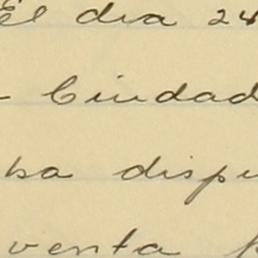 El dia 24
Ciudad
ha dispu
venta p